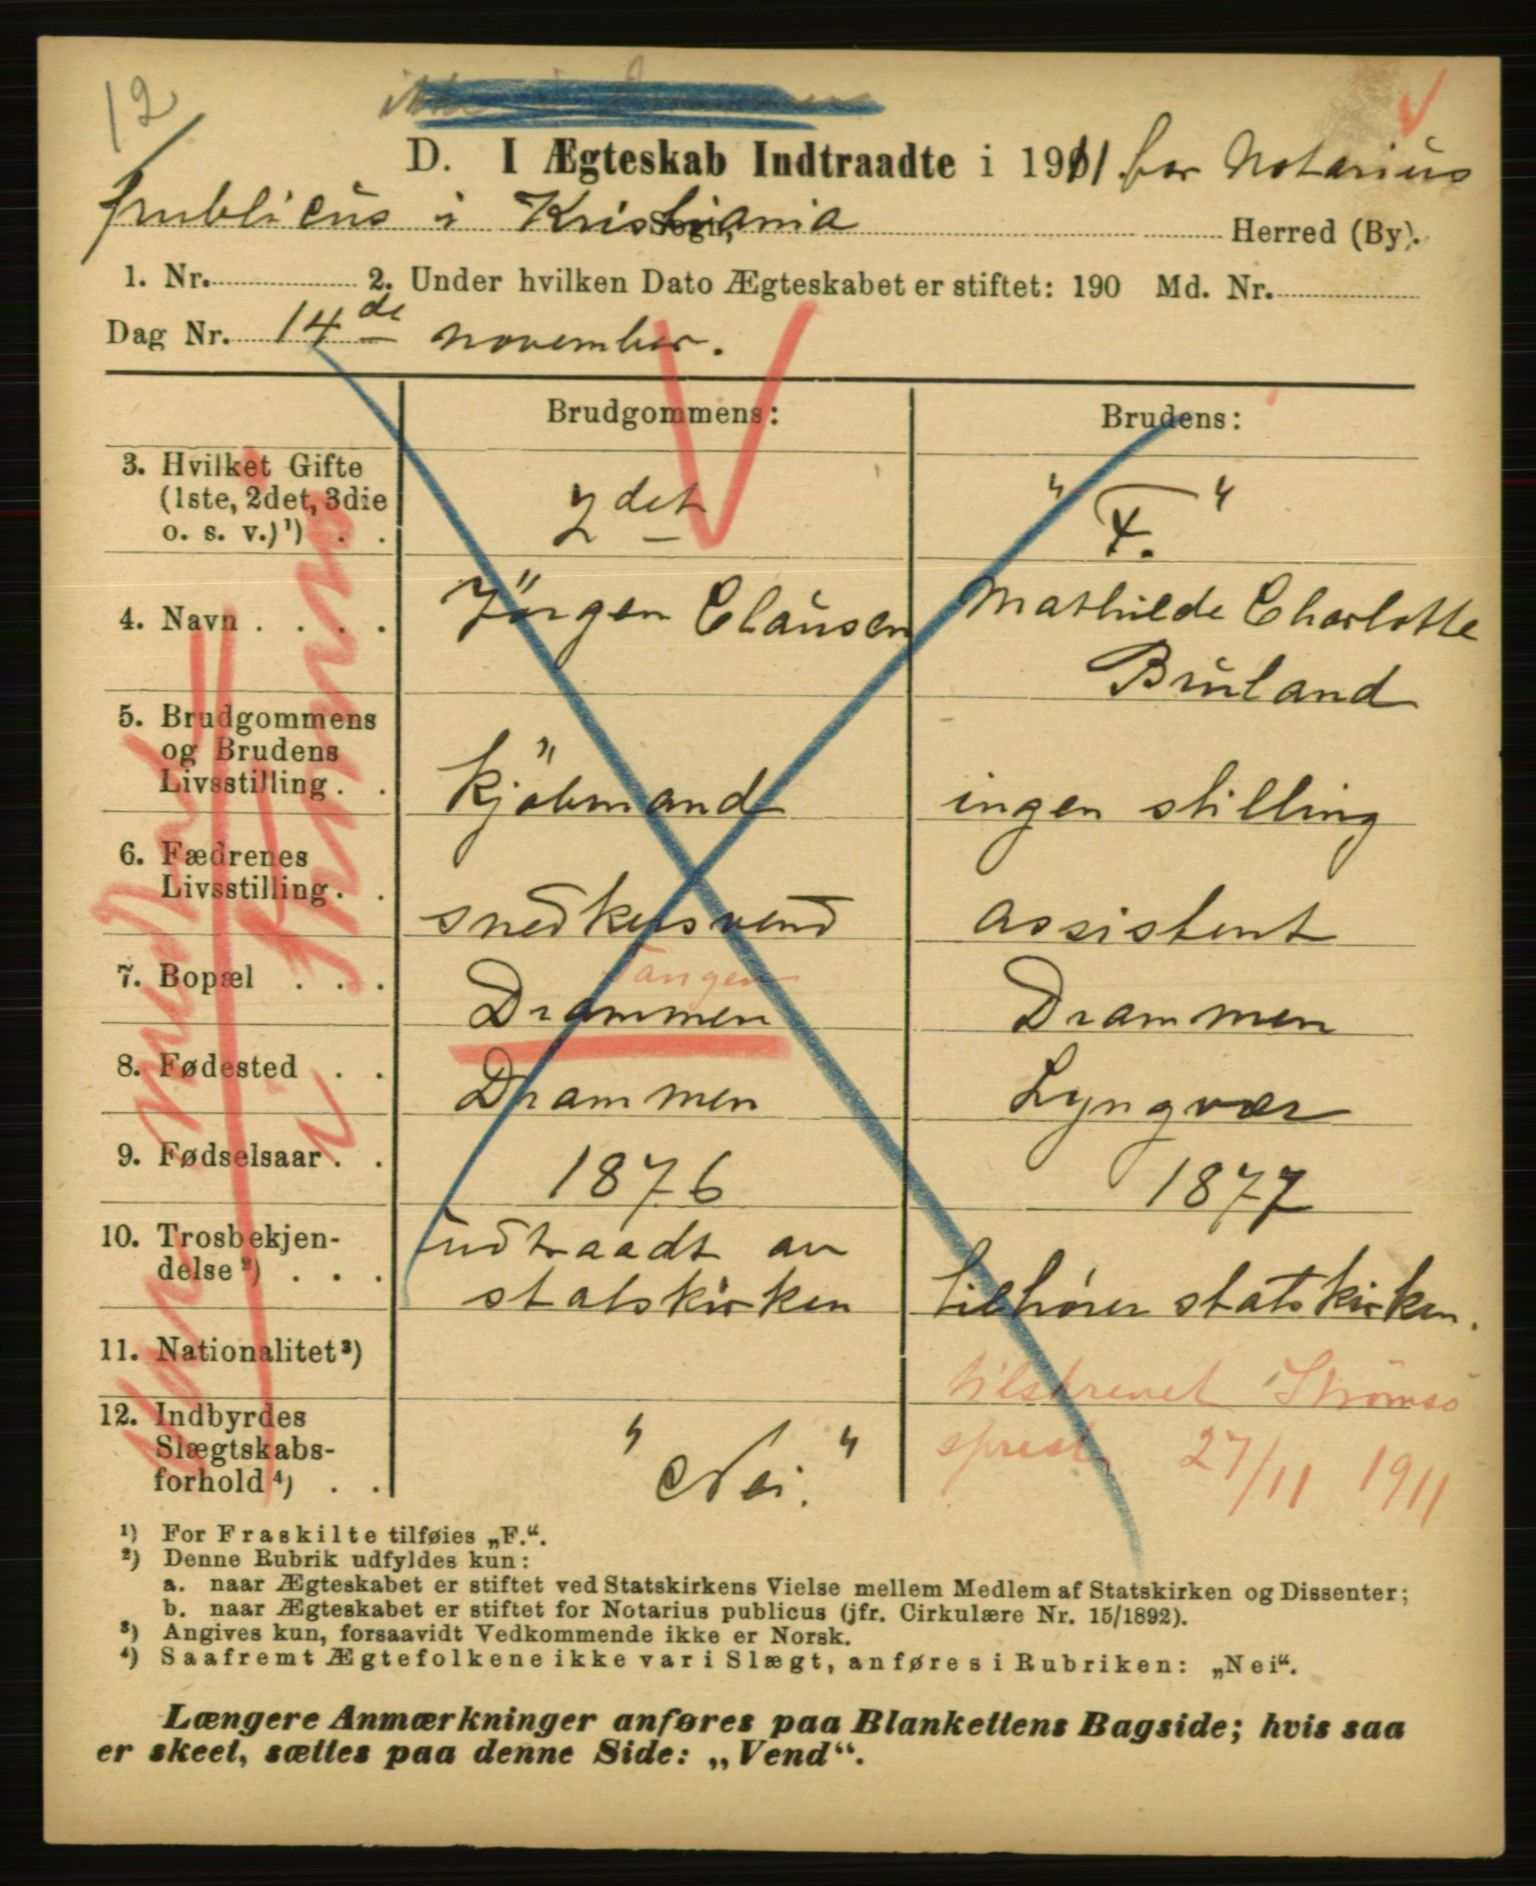 12
D. I Ægteskab Indtraadte i 1911 for Notarius
publicus i Kristiania Sogn, Herred (By).
1. Nr. 2. Under hvilken Dato Ægteskabet er stiftet: 190 Md. Nr.
Dag Nr. 14de november.
Brudgommens: Brudens:
3. Hvilket Gifte
(1ste, 2det, 3die
o. s. v.)¹) . .
2det
" F. "
4. Navn . . . .
Jörgen Clausen
Mathilde Charlotte
Bruland
5. Brudgommens
og Brudens
Livsstilling . .
kjöbmand
ingen stilling
6. Fædrenes
Livsstilling . .
snedkersvend
assistent
7. Bopæl . . .
Tangen
Drammen
Drammen
8. Fødested . .
Drammen
Lyngvær
9. Fødselsaar . .
1876
1877
10. Trosbekjen-
delse²) . . .
udtraadt av
statskirken
tilhører statskirken.
11. Nationalitet³)
tilskrevet Strømsø
sprest 27/11 1911
12. Indbyrdes
Slægtskabs-
forhold⁴) . .
" Nei. "
¹) For Fraskilte tilføies „F.“.
²) Denne Rubrik udfyldes kun:
a. naar Ægteskabet er stiftet ved Statskirkens Vielse mellem Medlem af Statskirken og Dissenter;
b. naar Ægteskabet er stiftet for Notarius publicus (jfr. Cirkulære Nr. 15/1892).
³) Angives kun, forsaavidt Vedkommende ikke er Norsk.
⁴) Saafremt Ægtefolkene ikke var i Slægt, anføres i Rubriken: „Nei“.
Længere Anmærkninger anføres paa Blankettens Bagside; hvis saa
er skeet, sættes paa denne Side: „Vend“.